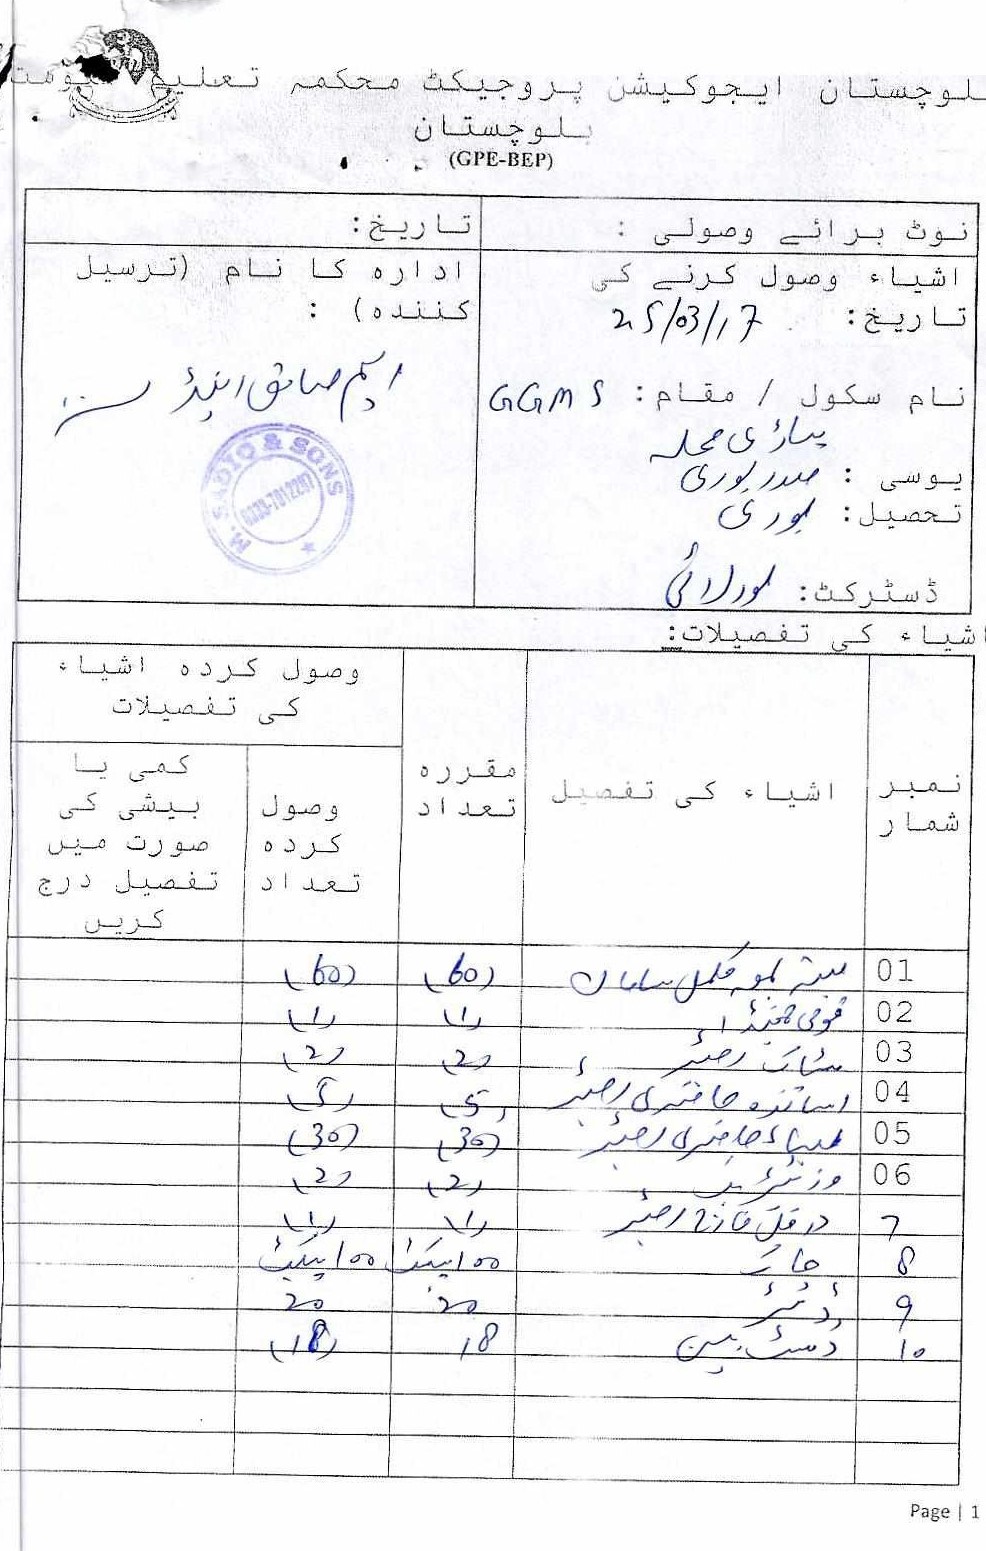 بلوچستان ایجوکیشن پروجیکٹ محکمہ تعلیم حکومت
بلوچستان
(GPE-BEP)
نوٹ برائے وصولی :
تاریخ:
اشیاء وصول کرنے کی
تاریخ: 25/03/17
نام سکول / مقام: GGMS
پہاڑی محلہ
یوسی : صدر لوری
تحصیل: بوری
ڈسٹرکٹ: لورالائی
ادارہ کا نام (ترسیل
کنندہ) :
ایم صادق اینڈ سنز
M. SADIQ & SONS
اشیاء کی تفصیلات:
نمبر شمار
اشیاء کی تفصیل
مقررہ تعداد
وصول کردہ اشیاء کی تفصیلات
وصول کردہ تعداد
کمی یا بیشی کی صورت میں تفصیل درج کریں
01 مکمل سامان (60) (60)
02 قومی جھنڈا (1) (1)
03 سٹاک رجسٹر (2) (2)
04 اساتذہ حاضری رجسٹر (5) (5)
05 طلباء حاضری رجسٹر (30) (30)
06 (2) (2)
7 داخل خارج رجسٹر (1) (1)
8 چاک 100 پیکٹ 100 پیکٹ
9 ڈسٹر 20 20
10 ڈسٹ بین 18 (18)
Page | 1